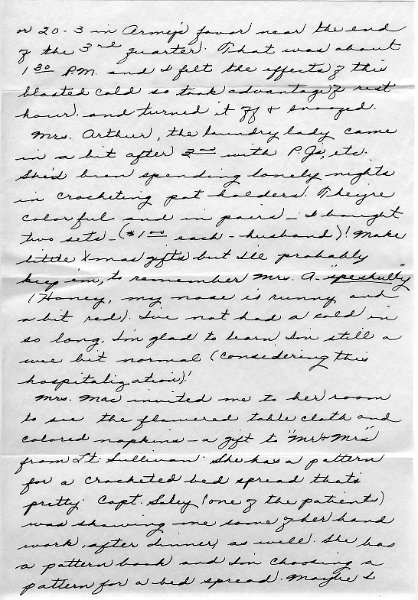 or 20-3 in Army's favor near the end
of the 3rd quarter. That was about
1 30 P.M. and I felt the effects of this
blasted cold so took advantage of rest
hour and turned it off & snoozed.
Mrs. Arthur, the laundry lady came
in a bit after 3 00 with P.Js, etc.
She'd been spending lonely nights
in crocheting pot-holders! They're
colorful and in pairs - I bought
two sets - ($1 00 each - husband)! Make
little Xmas gifts but I'll probably
keep 'em, to remember Mrs. A. "speshully"
(Honey, my nose is runny, and
a bit red). I've not had a cold in
so long. I'm glad to learn I'm still a
wee bit normal (considering this
hospitalization)!
Mrs. Mac invited me to her room
to see the flowered table cloth and
colored napkins - a gift to "Mr & Mrs"
from Lt Sullivan. She has a pattern
for a crocheted bed spread that's
pretty. Capt. (one of the patients)
was showing me some of her hand
work, after dinner, as well. She has
a pattern book and I'm choosing a
pattern for a bed spread. Maybe I